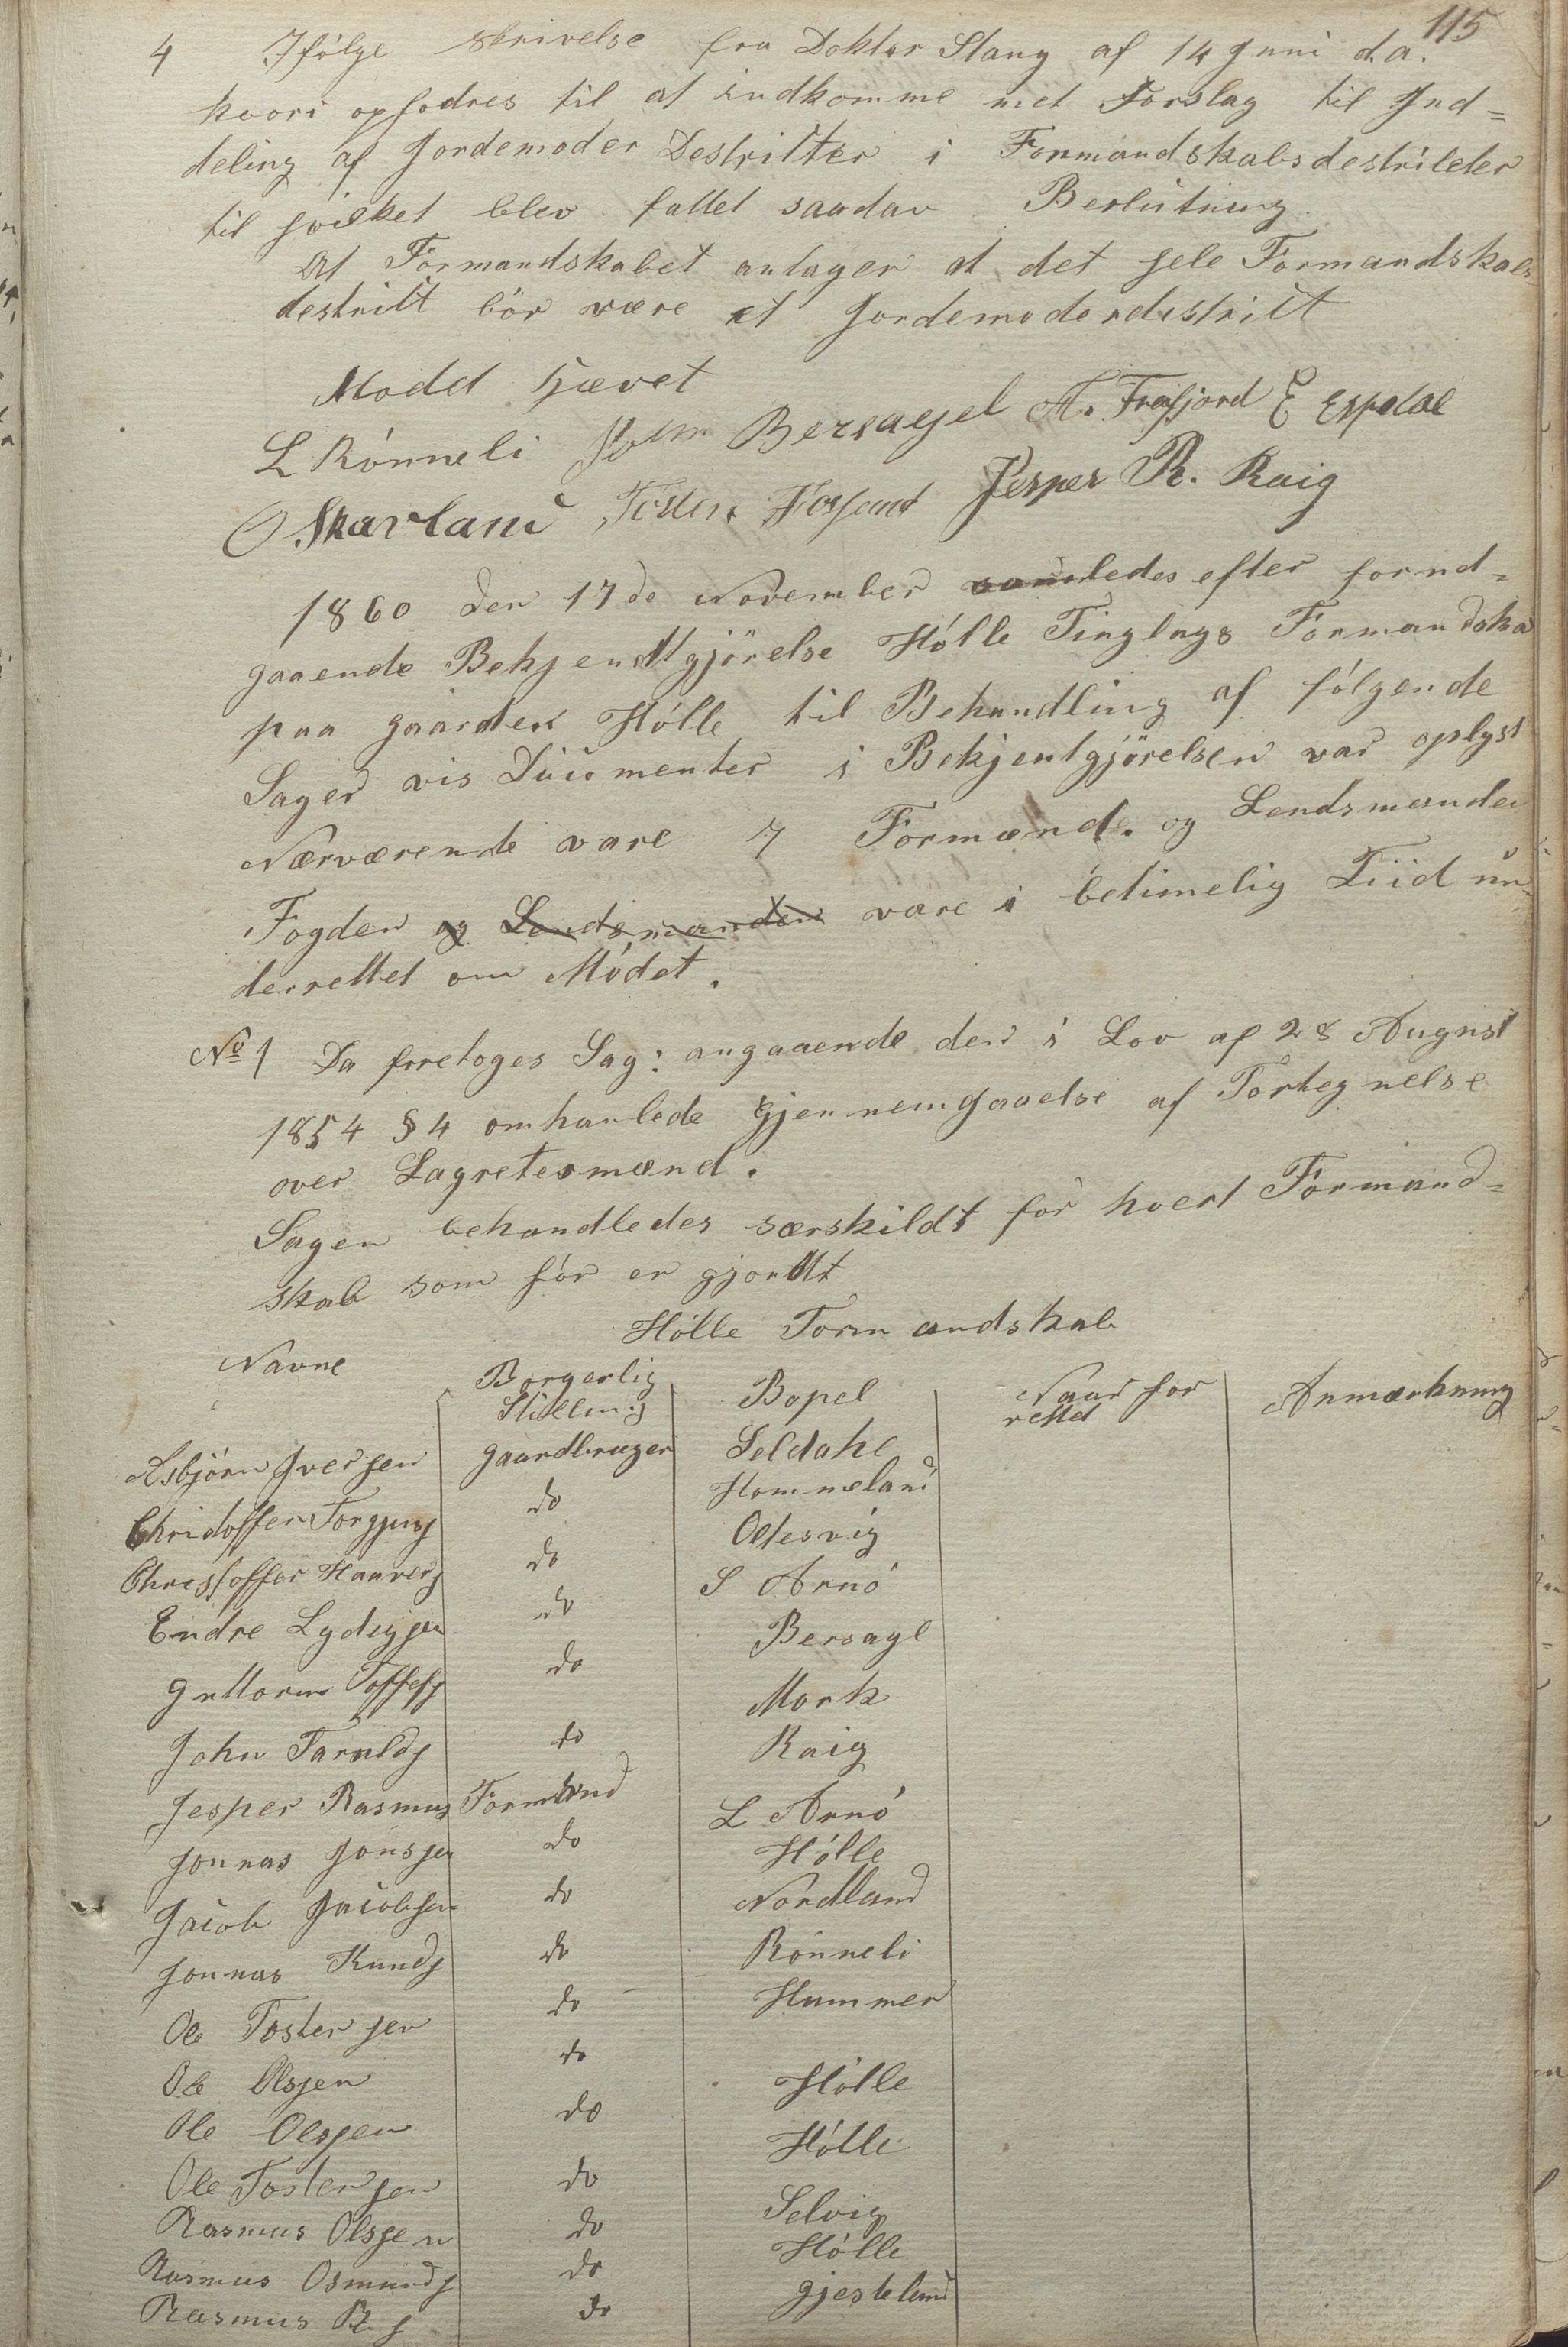 115
4 Ifölge skrivelse fra Doktor Stang af 14 Juni d.a.
hvori opfodres til at indkomme met Forslag til Ind=
deling af Jordemoder Destrikter i Formandskabsdestrikter
til hvilket blev fattet saadan Beslutning
At Formandskabet antager at det hele Formandskabs
destrikt bör være et Jordemoderdistrikt
Mödet hævet
L Rönneli John Bersagel A. Frafjord E Espedal
O Skavland Tosten Forsand Jesper R. Raig
1860 den 17de November samledes efter forud=
gaaende Bekjendtgjörelse Hölle Tinglags Formandska
paa gaarden Hölle til Behandling af fölgende
Sager vis Ducumenter i Bekjentgjörelsen var oplyst
Nærværende vare 7 Formænd. og Lendsmanden
Fogden og Lendsmanden vare i betimelig Tiid un=
derrettet om Mödet.
No 1 Da forretoges Sag: angaaende den i Lov af 28 August
1854 § 4 omhanlede Gjennemgaaelse af Fortegnelse
over Lagretesmænd.
Sagen behandledes særskildt for hvert Formand=
skab som för er gjordt
Hölle Formandskab
Navne Borgerlig Stilling Bopel Naar for rettet Anmærkning
Asbjörn Iversen gaardbruger Seldahl
Christoffer Torgjusj do Hommeland
Chrestoffer Haaversj do Oltesvig
Endre Lydigsen do S Arnö
Guttorm Toffesj do Bersagl
John Taraldsj do Mork
Jesper Rasmus Formand Raig
Jonnas Jonsen do L Arnö
Jacob Jacobsen do Hölle
Jonnas Knudsj do Nordland
Ole Tostensen do Rönneli
Ole Olsen do Hammer
Ole Olsen do Hölle
Ole Tostensen do Hölle
Rasmus Olsen do Selvig
Rasmus Osmundsj do Hölle
Rasmus R. j do gjesteland